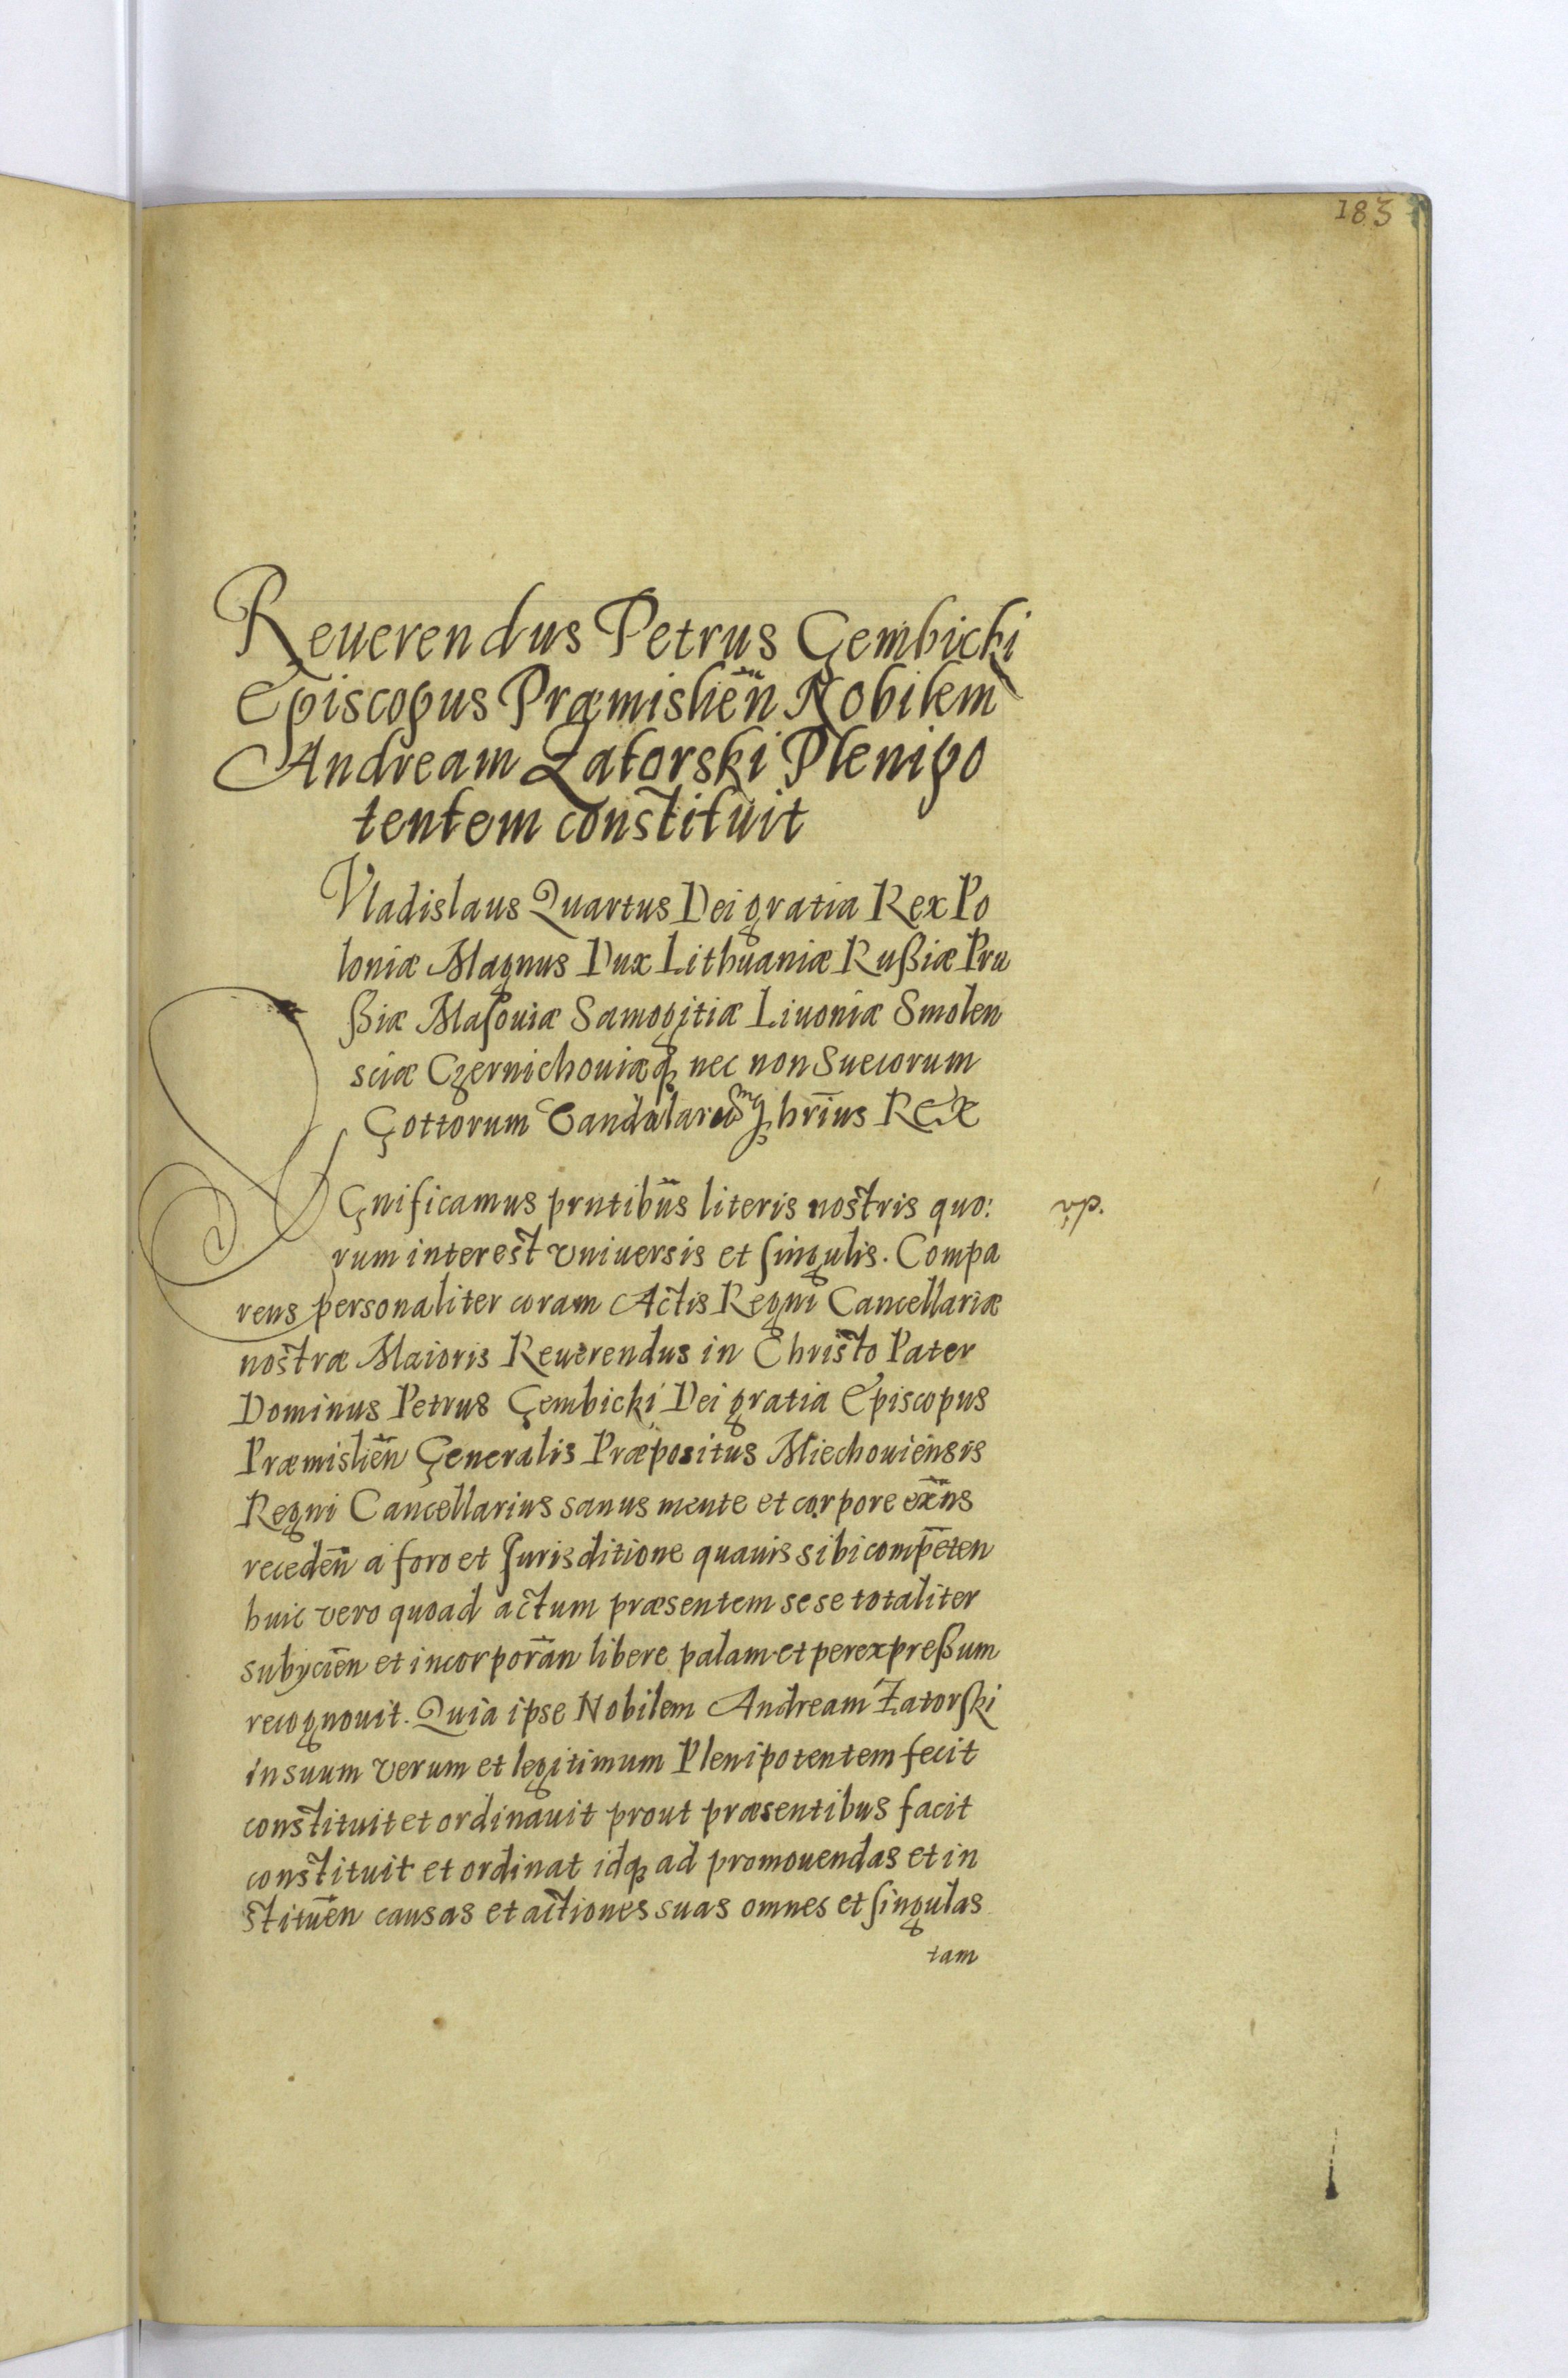 183
Reuerendus Petrus Gembicki
Episcopus Præmislien̄ Nobilem
Andream Zatorski Plenipo
tentem constituit
Vladislaus Quartus Dei gratia Rex Po
loniæ Magnus Dux Lithuaniæ Rußiæ Pru
ßiæ Masouiæ Samogitiæ Liuoniæ Smolen
sciæ Czernichouiæq́ꝫ nec non Suecorum
Gottorum Vandalarumqꝫ hr̄ius REX
Significamus prntibus literis nostris quo:
rum interest vniuersis et singulis. Compa
rens personaliter coram Actis Regni Cancellariæ
nostræ Maioris Reuerendus in Christo Pater
Dominus Petrus Gembicki Dei gratia Episcopus
Præmislien̄ Generalis Præpositus Miechouiensis
Regni Cancellarius sanus mente et corpore ex̄ns
receden̄ a foro et Jurisditione quauis sibi competen̄
huic vero quoad actum præsentem sese totaliter
subijcien̄ et incorporan̄ libere palam et per expreßum
recognouit. Quia ipse Nobilem Andream Zatorski
in suum verum et legitimum Plenipotentem fecit
constituit et ordinauit prout præsentibus facit
constituit et ordinat idqꝫ ad promouendas et in
stituen̄ causas et actiones suas omnes et singulas
tam